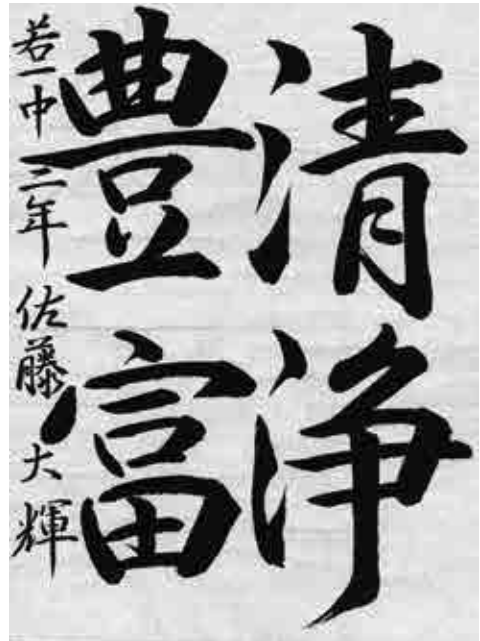 清浄
豊富
若一中二年佐藤大輝